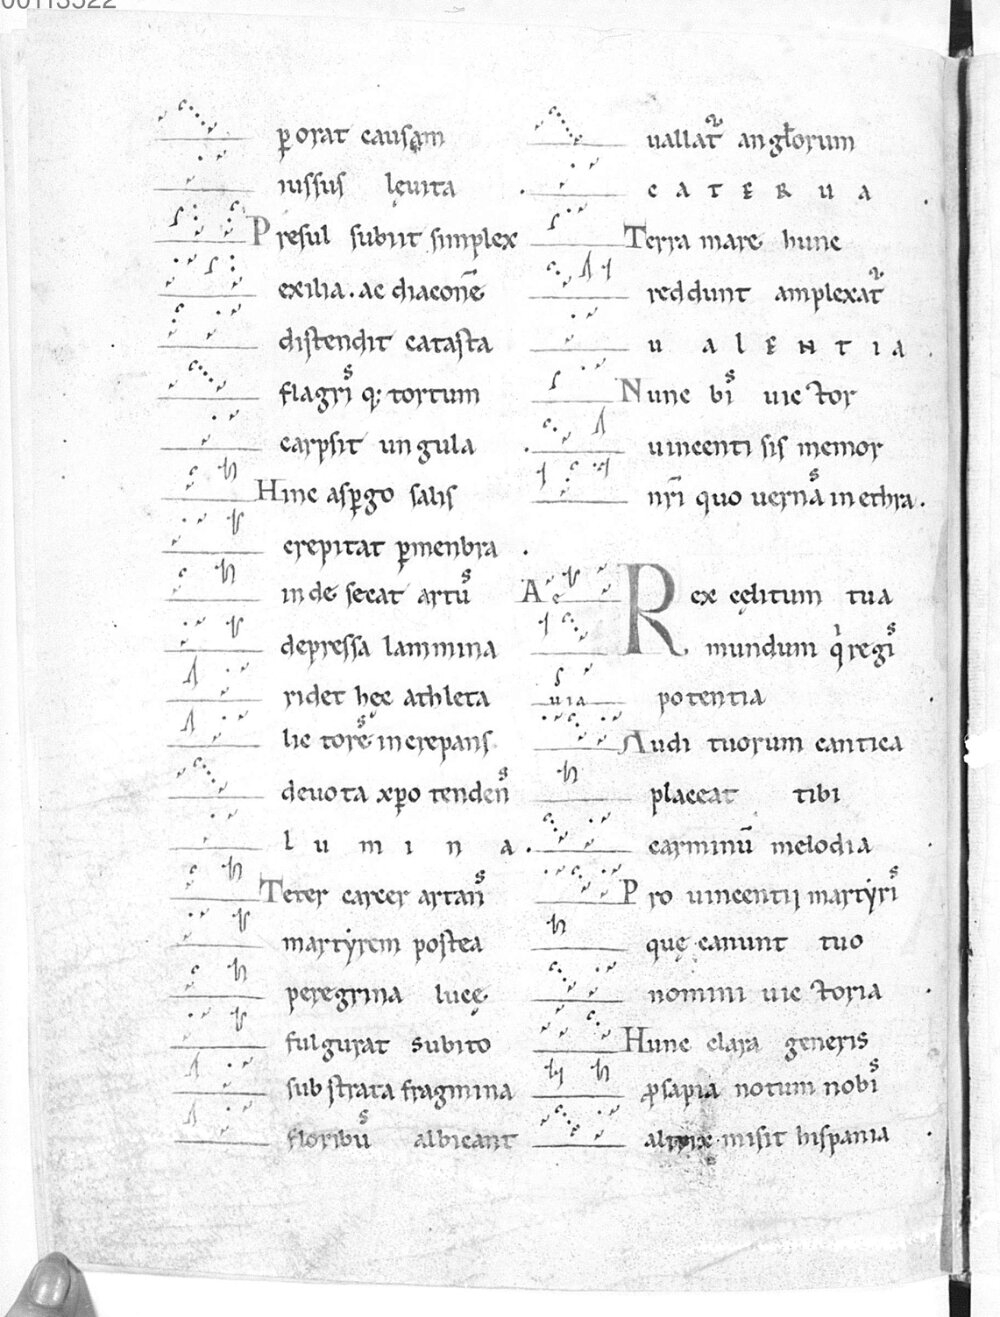 00113522
ꝑorat causam
iussus lęuita
Presul subiit simplex
exilia. ac diaconē
distendit catasta
flagriˢ q; tortum
carpsit ungula
Hinc asꝑgo salis
crepitat ꝑmenbra .
inde secat artuˢ
depressa lammina
ridet hęc athleta
lictoreˢ increpans
deuota xp̄o tendenˢ
lumina .
Teter carcer artanˢ
martẏrem postea
peregrina lucę
fulgurat subito
substrata fragmina
floribuˢ albicant
uallat᷑ angłorum
CATERUA
Terra mare hunc
reddunt amplexat᷑
UALENTIA .
Nunc biˢ uictor
uincenti sis memor
nr̄i quo uernaˢ in ethra .
Ae Rex cęlitum tua
mundum qͥ regiˢ
uia potentia
Audi tuorum cantica
placeat tibi
carminū melodia
Pro uincentii martẏriˢ
quę canunt tuo
nomini uictoria .
Hunc clara generis
ꝓsapia notum nobiˢ
misit hispania .